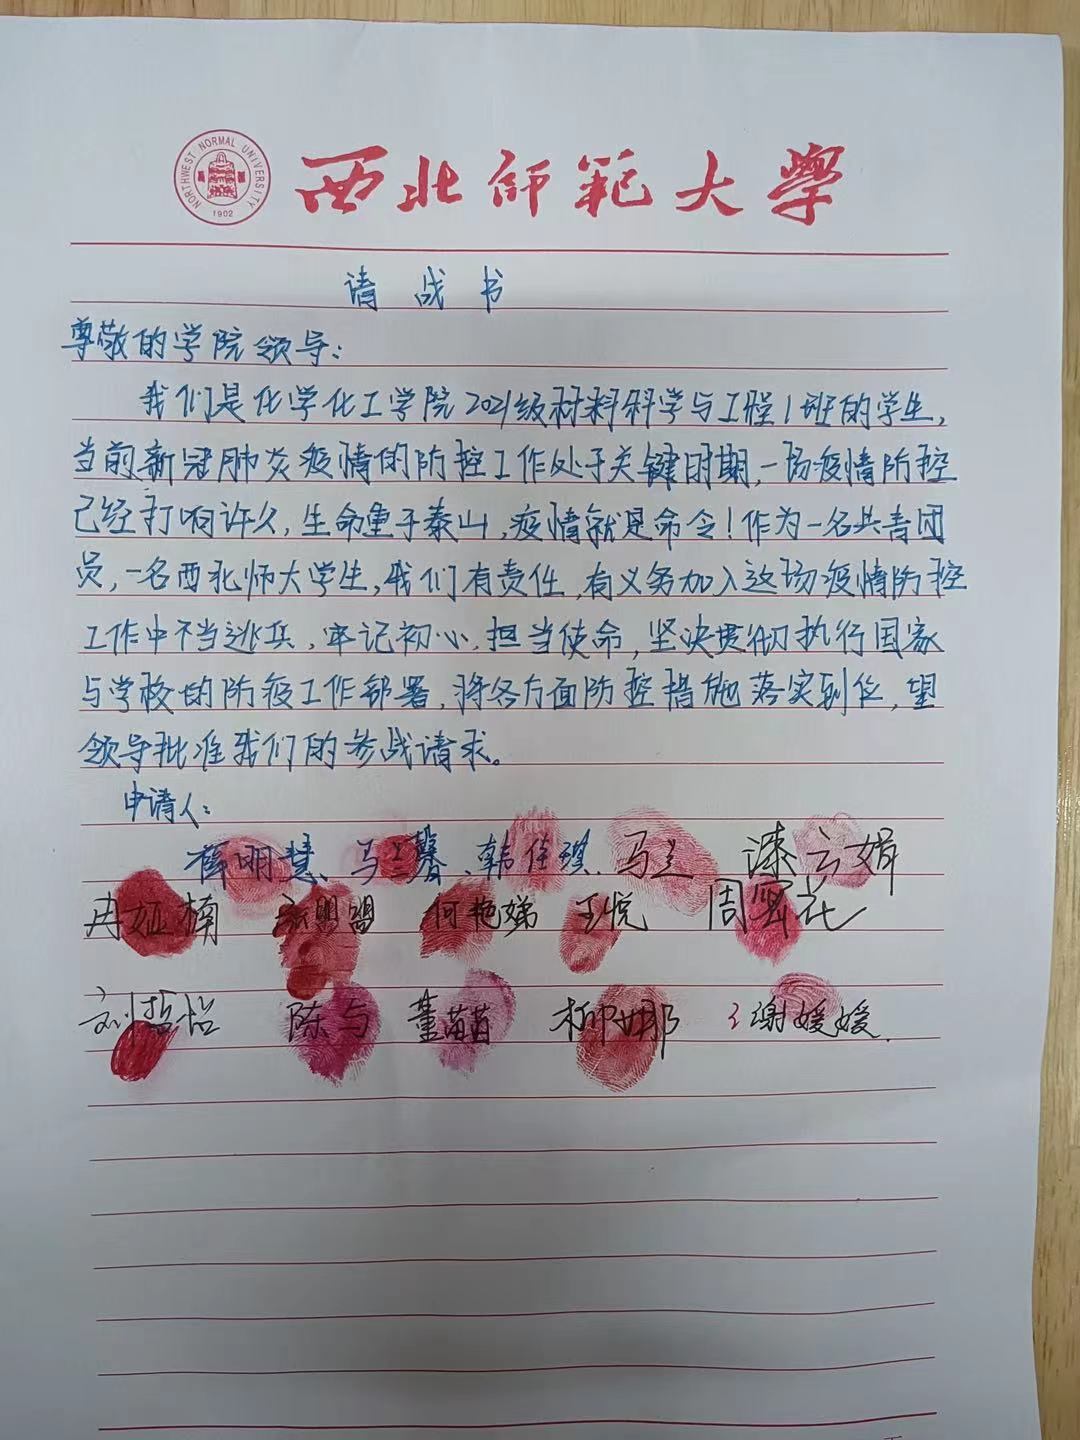 NORTHWEST NORMAL UNIVERSITY
1902
西北师范大学
请战书
尊敬的学院领导：
我们是化学化工学院2021级材料科学与工程1班的学生，
当前新冠肺炎疫情的防控工作处于关键时期，一场疫情防控
已经打响许久，生命重于泰山，疫情就是命令！作为一名共青团
员，一名西北师大学生，我们有责任，有义务加入这场疫情防控
工作中不当逃兵，牢记初心，担当使命，坚决贯彻执行国家
与学校的防疫工作部署，将各方面防控措施落实到位，望
领导批准我们的参战请求。
申请人：
薛明慧、马兰馨、韩佳琪、马兰 漆云娟
冉娅楠 张明明 何艳娣 王悦 周寒花
刘哲怡 陈与 董苗苗 柳娜 谢媛媛